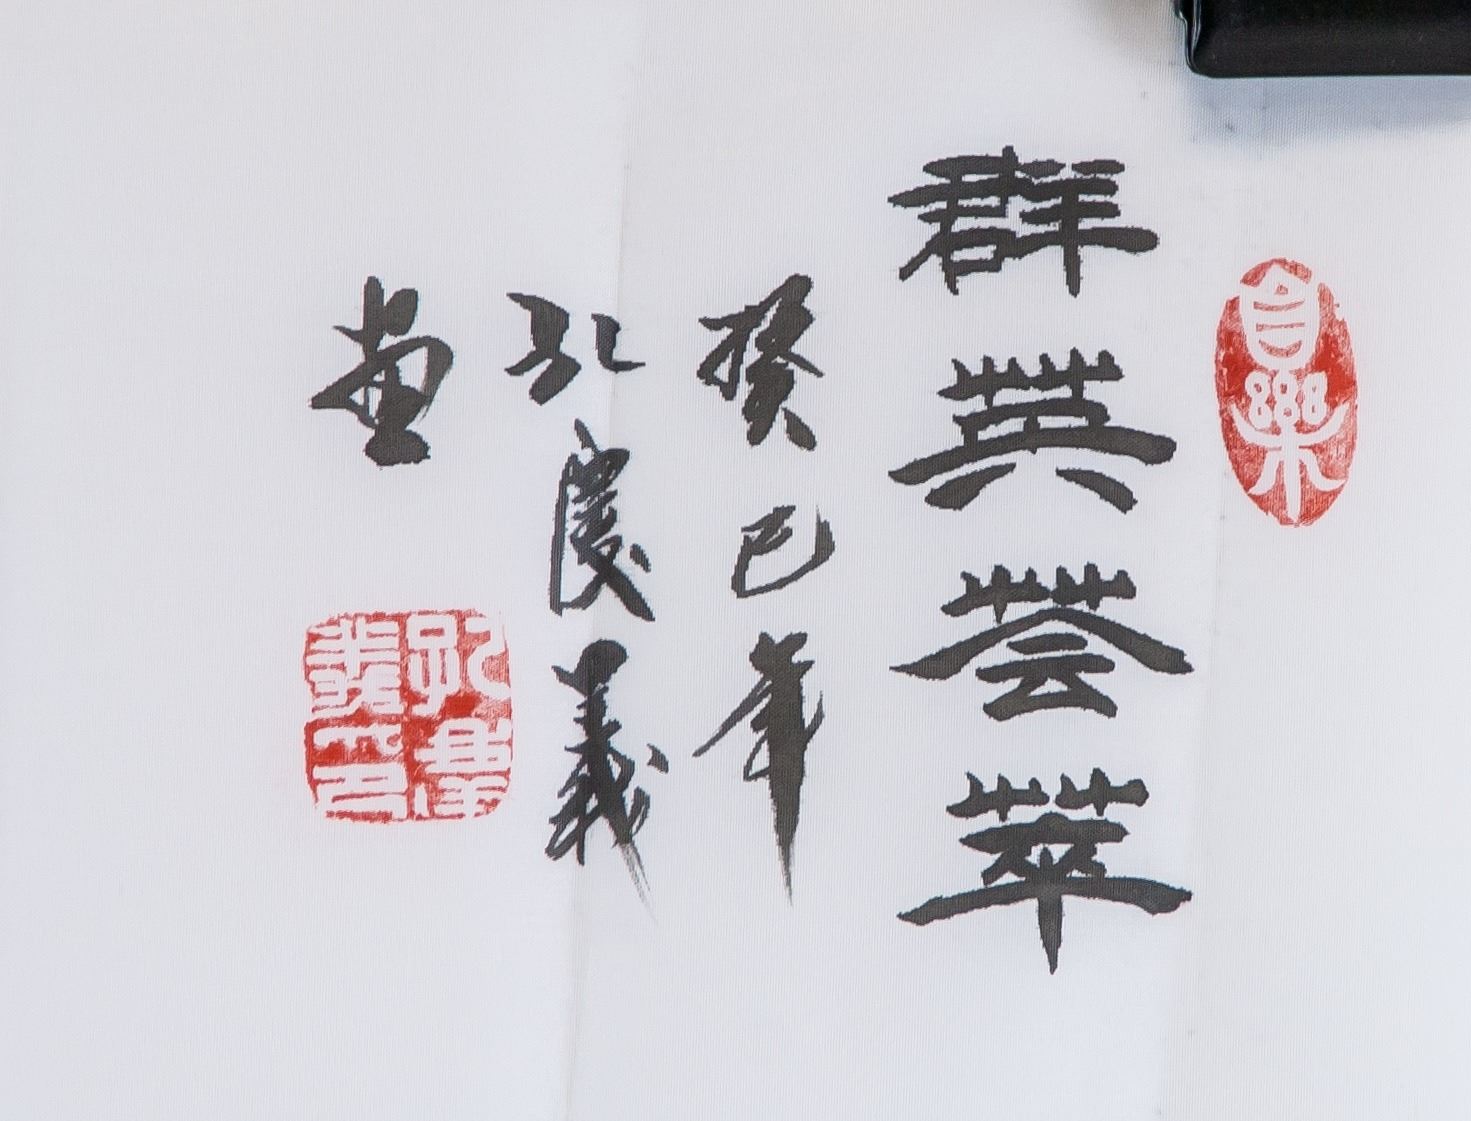 群英荟萃
癸巳年
孔慶義
畫